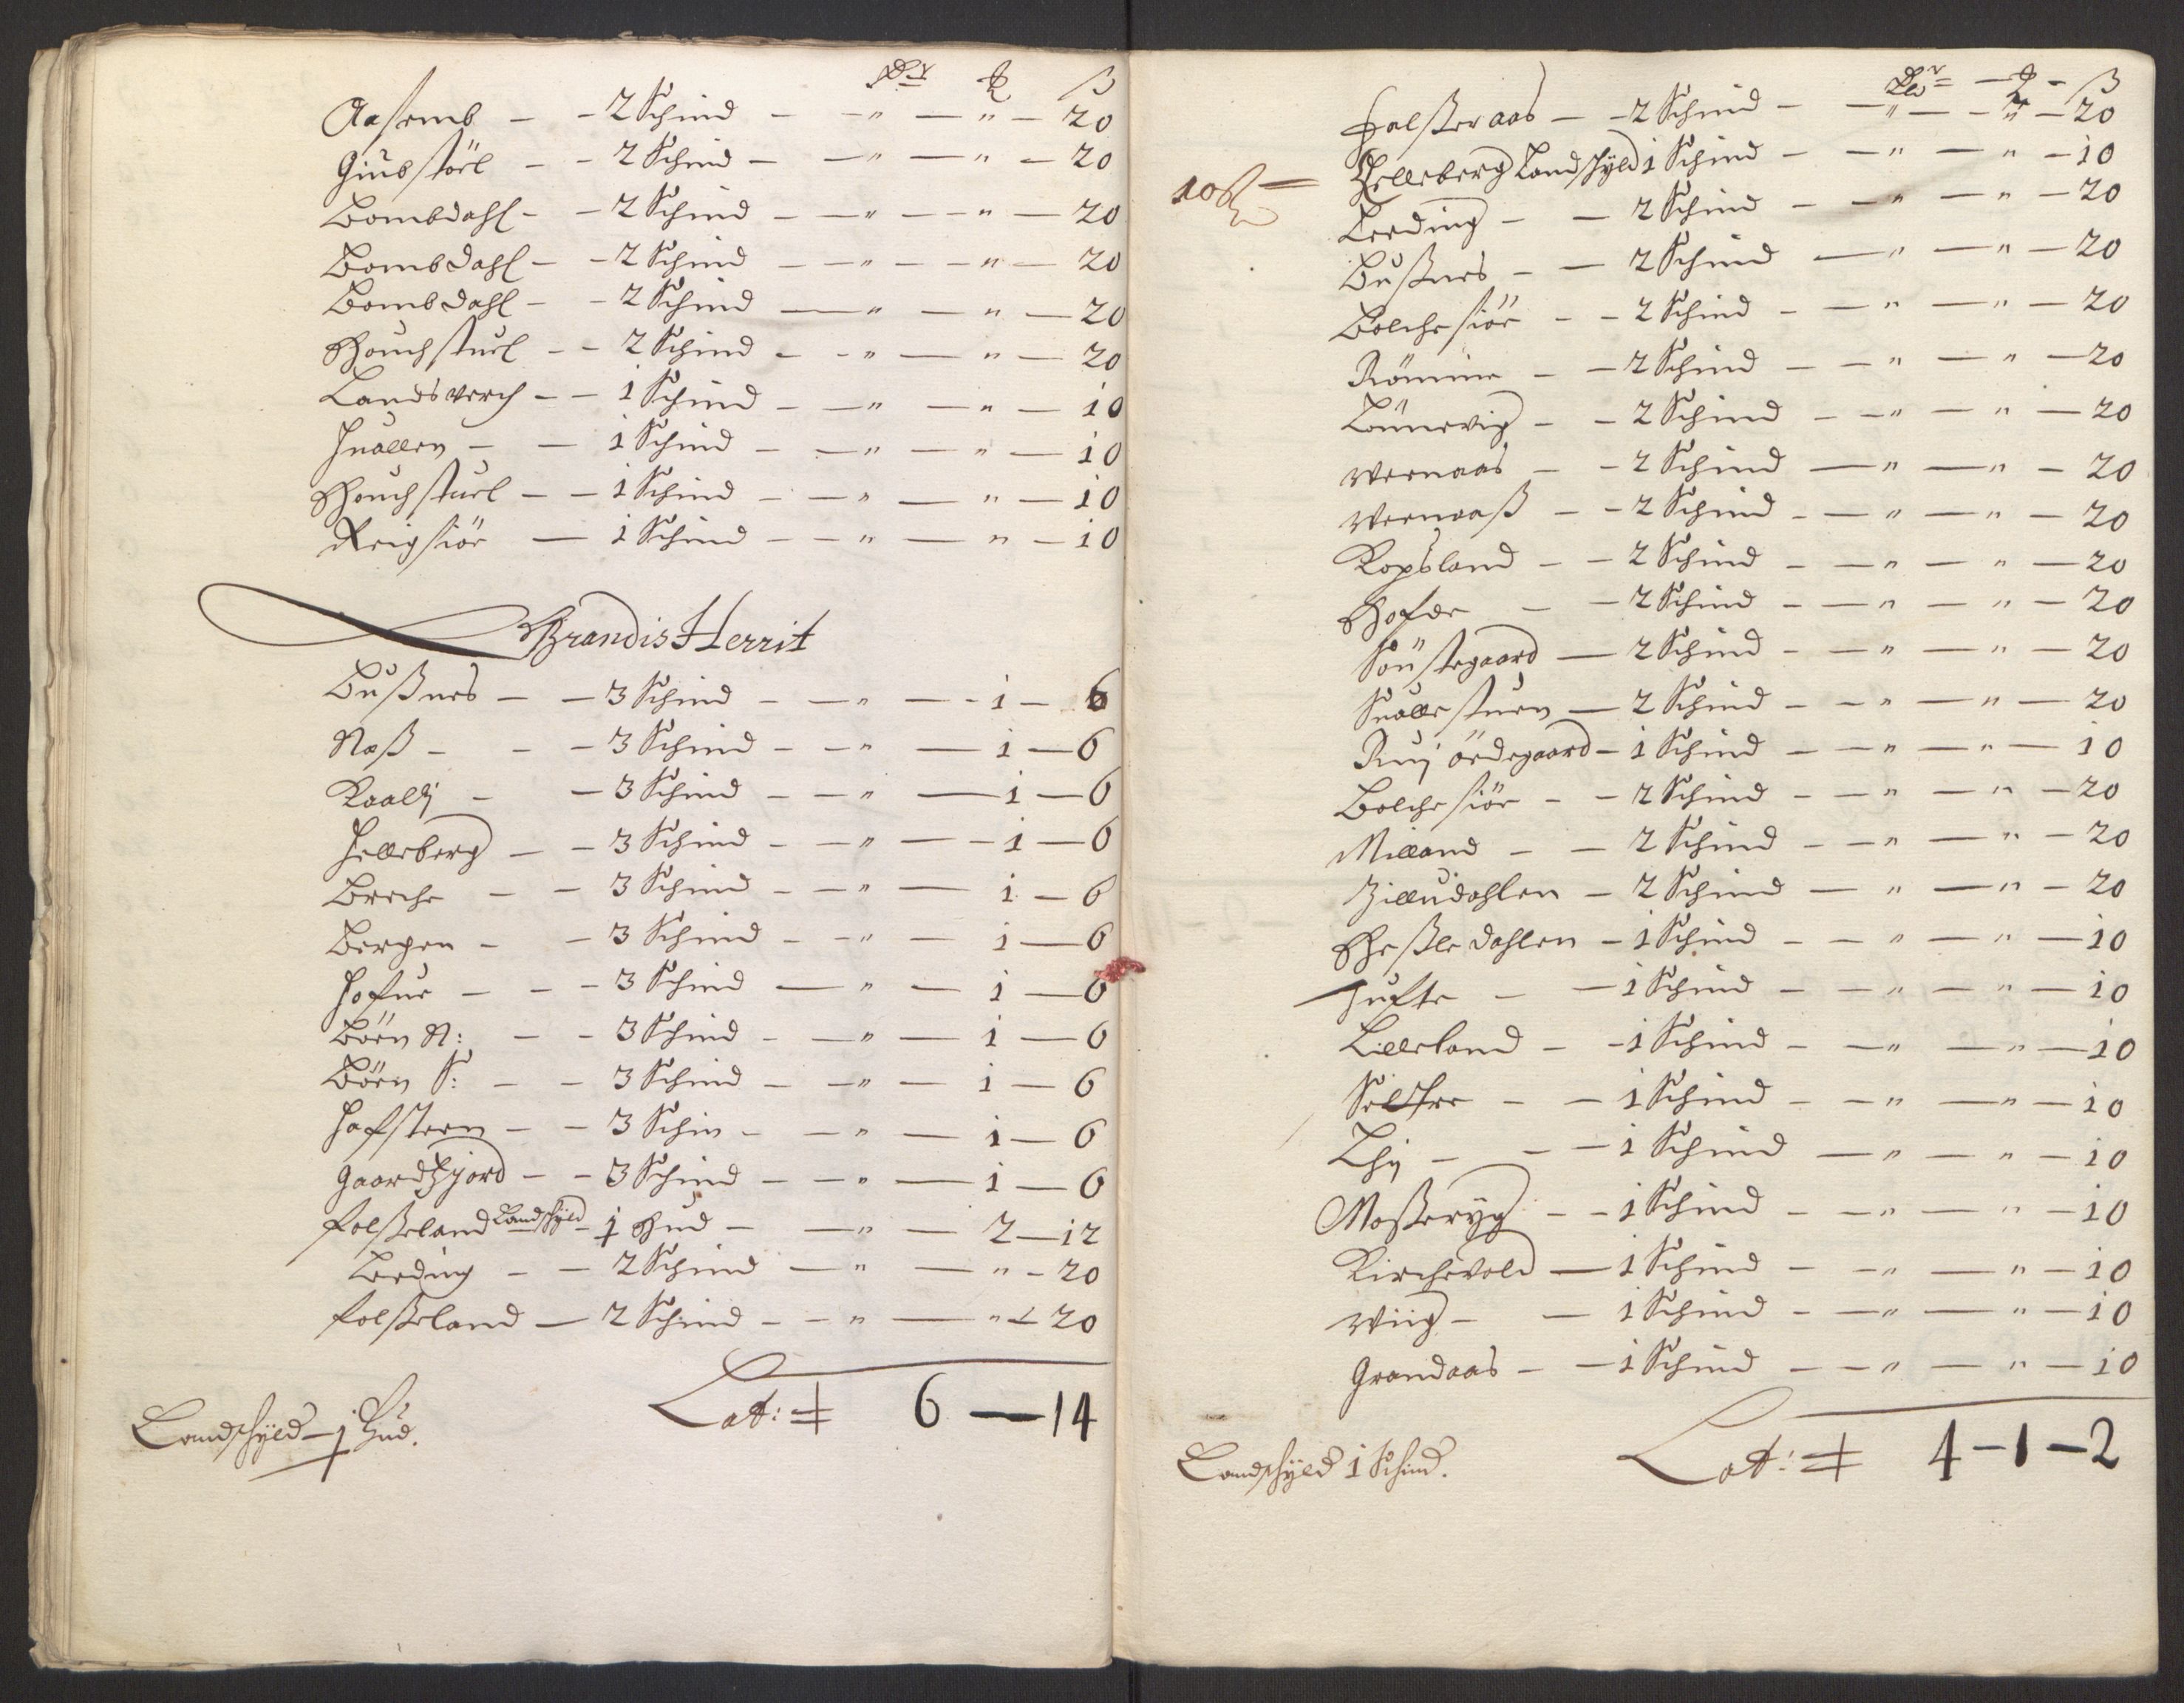 Dr — ₰ — ß
Aasemb — — 2 Schind — — " — " — 20
Giubstöel — — 2 Schind — — " — " — 20
Bombdahl — — 2 Schind — — " — " — 20
Bombdahl — — 2 Schind — — " — " — 20
Bombdahl — — 2 Schind — " — " — 20
Houchstuel — — 2 Schind — — " — " — 20
Landsverch — — 1 Schind — — " — " — 10
Juallen — — 1 Schind — — " — " — 10
Houchstuel — — 1 Schind — — " — " — 10
Reigsiöe — 1 Schind — — " — " — 10
Brandis Herrit
Bußnes — — 3 Schind — — " — 1 — 6
Næß — — — 3 Schind — — " — 1 — 6
Raalj — — 3 Schind — — " — 1 — 6
Helleberg — — 3 Schind — — " — 1 — 6
Breche — — 3 Schind — — " — 1 — 6
Bergen — — 3 Schind — — " — 1 — 6
Hofue — — — 3 Schind — " — 1 — 6
Böen N: — — 3 Schind — — " — 1 — 6
Böen S: — — 3 Schind — — " — 1 — 6
Hafsteen — — 3 Schin — — " — 1 — 6
Gaardzjord — — 3 Schind — — " — 1 — 6
Folßeland Landschyld — 1 Hud — — " — 2 — 12
Beding — — 2 Schind — " — " — 20
Folßeland — 2 Schind — — " — " — 20
Lat: 6 — 14
Landschyld — 1 Hud.
Dlr — ₰ — ß
Falsteraas — — 2 Schind — — " — " — 20
Helleberg Landschyld 1 Schind — — " — " — 10
Beeding — — 2 Schind — — " — " — 20
Bußnes — — 2 Schind — " — " — 20
Bolchesiöe — — 2 Schind — — " — " — 20
Römmie — — 2 Schind — — " — " — 20
Lönnevig — — 2 Schind — — " — " — 20
Vernaas — — 2 Schind — " — " — 20
Vernaaß — — 2 Schind — — " — " — 20
Ropsland — — 2 Schind — — " — " — 20
Hofde — — 2 Schind — — " — " — 20
Söustegaard — 2 Schind — — " — " — 20
Snallestuen — 2 Schind — — " — " — 20
Ruj ödegaard — 1 Schind — — " — " — 10
Bolchesiöe — — 2 Schind — — " — " — 20
Milland — — 2 Schind — — " — " — 20
Zilludahlen — 2 Schind — " — " — 20
Heßledahlen — 1 Schind — — " — " — 10
Hufte — — 1 Schind — — " — " — 10
Lilleland — — 1 Schind — — " — " — 10
— — 1 Schind — — " — " — 10
Lhij — — — 1 Schind — " — " — 10
Moßeryg — — 1 Schind — — " — " — 10
Kirchevold — 1 Schind — — " — " — 10
Viig — — 1 Schind — — " — " — 10
Grandaas — — 1 Schind — — " — " — 10
Lat: 4 — 1 — 2
Landschyld 1 Schind.